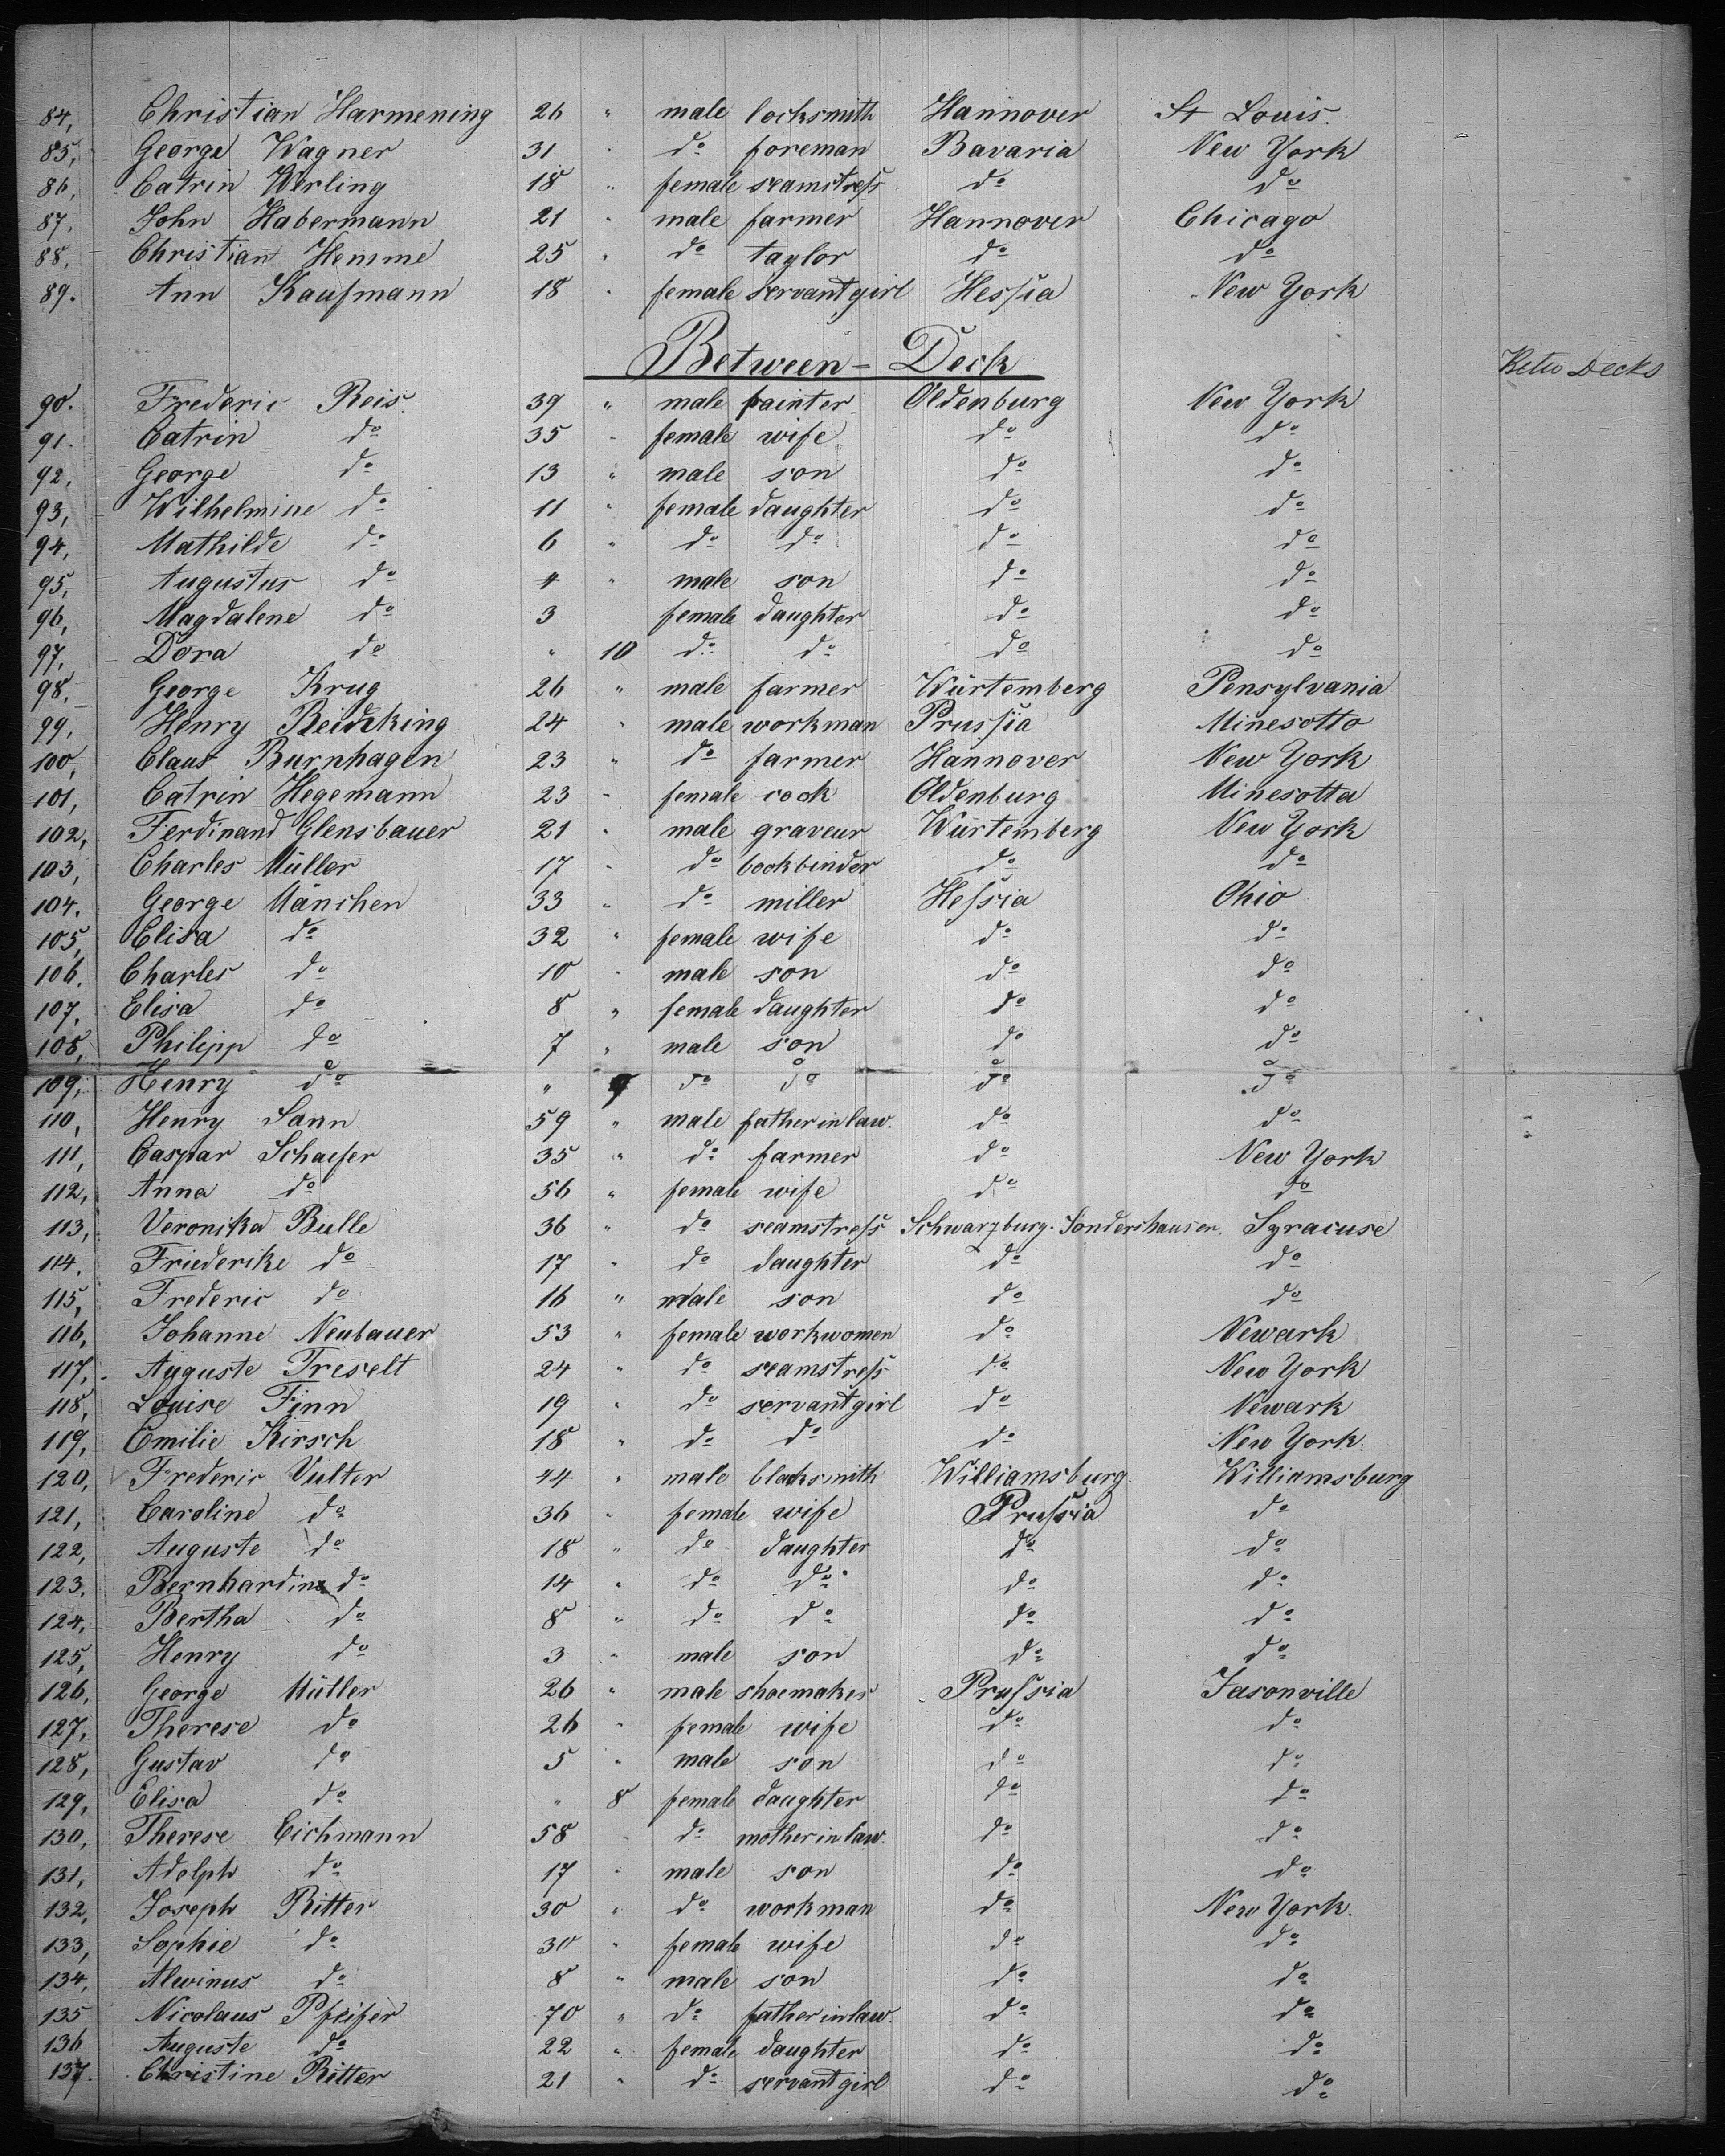 84, Christian Harmening 26 " male locksmith Hannover St Louis.
85, George Wagner 31 " do foreman Bavaria New York
86, Catrin Werling 18 " female seamstress do do
87, John Habermann 21 " male farmer Hannover Chicago
88, Christian Hemme 25 " do taylor do do
89. Ann Kaufmann 18 " female servantgirl Hessia New York
Between-Deck Betw Decks
90. Frederic Reis. 39 " male painter Oldenburg New York
91. Catrin do 35 " female wife do do
92, George do 13 " male son do do
93, Wilhelmine do 11 " female daughter do do
94, Mathilde do 6 " do do do do
95, Augustus do 4 " male son do do
96, Magdalene do 3 female daughter do do
97, Dora do " 10 do do do do
98, George Krug 26 " male farmer Würtemberg Pensylvania
99, Henry 24 " male workman Prussia Minesotto
100, Claus Burnhagen 23 " do farmer Hannover New York
101, Catrin Hegemann 23 " female cook Oldenburg Minesotta
102, Ferdinand Glensbauer 21 " male graveur Würtemberg New York
103, Charles Müller 17 " do bookbinder do do
104. George Mänchen 33 " do miller Hessia Ohio
105, Elisa do 32 " female wife do do
106. Charles do 10 " male son do do
107, Elisa do 8 " female daughter do do
108, Philipp do 7 " male son do do
109, Henry do " 9 do do do do
110, Henry Sann 59 " male father in law. do do
111, Caspar Schaefer 35 " do farmer do New York
112, Anna do 56 " female wife do do
113, Veronika Bulle 36 " do seamstress Schwarzburg. Sondershausen. Syracuse
114. Friederike do 17 " do daughter do do
115, Frederic do 16 " male son do do
116, Johanne Neubauer 53 " female workwomen do Newark
117, Auguste Treselt 24 " do seamstress do New York
118, Louise Finn 19 " do servantgirl do Newark
119, Emilie Kirsch 18 " do do do New York.
120, Frederic Vulter 44 " male blacksmith Williamsburg. Williamsburg
121, Caroline do 36 " female wife Prussia do
122, Auguste do 18 " do daughter do do
123. Bernhardine do 14 " do do do do
124, Bertha do 8 " do do do do
125, Henry do 3 " male son do do
126, George Müller 26 " male shoemaker Prussia Jasonville
127, Therese do 26 " female wife do do
128, Gustav do 5 " male son do do
129, Elisa do " 8 female daughter do do
130, Therese Eichmann 58 " do mother in law. do do
131, Adolph do 17 " male son do do
132, Joseph Ritter 30 " do workman do New York.
133, Sophie do 30 " female wife do do
134, Alwinus do 8 " male son do do
135 Nicolaus Pfeifer 70 " do father in law. do do
136 Auguste do 22 " female daughter do do
137. Christine Ritter 21 " do servantgirl do do